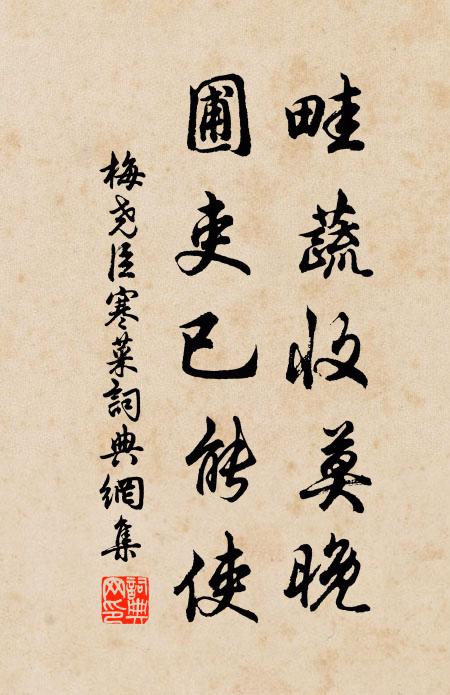 畦蔬收莫晚
圃吏已能使
梅尧臣寒菜詞典網集
詞典
网印